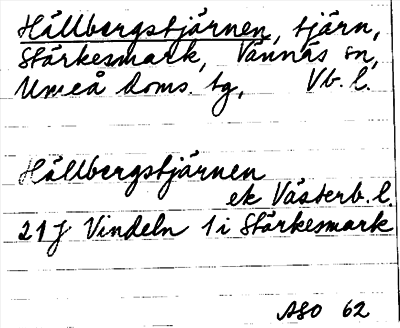 Hällbergstjärnen, tjärn,
Stärkesmark, Vännäs sn,
Umeå Doms. tg, Vb. l.
Hällbergstjärnen
ek Västerb. l.
21 J Vindeln 1 i Stärkesmark
ASO 62